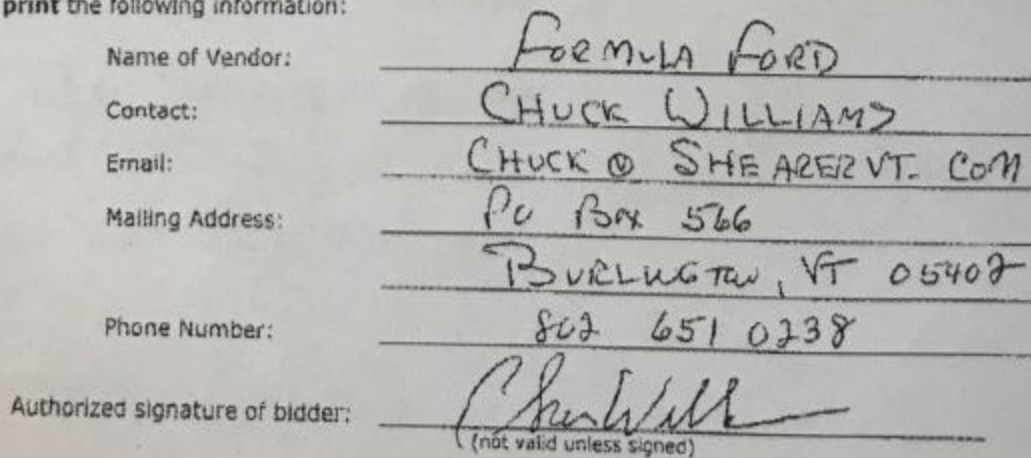 print the following information:
Name of Vendor: FORMULA FORD
Contact: CHUCK WILLIAMS
Email: CHUCK @ SHEARERVT. COM
Mailing Address: PO BOX 566
BURLINGTON, VT 05402
Phone Number: 802 651 0238
Authorized signature of bidder:
(not valid unless signed)